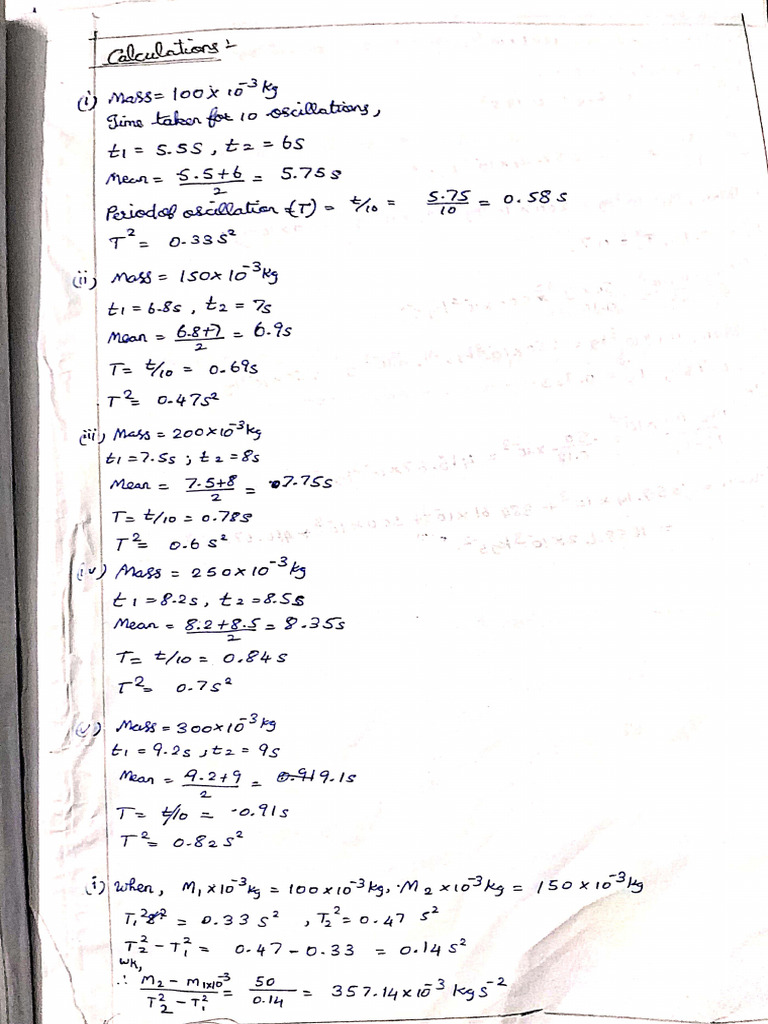 Calculations :-
(i) Mass = 100 × 10⁻³ kg
Time taken for 10 oscillations,
t1 = 5.5S , t2 = 6S
Mean = (5.5+6)/2 = 5.75 s
Period of oscillation (T) = t/10 = 5.75/10 = 0.58 s
T² = 0.33 s²
(ii) Mass = 150 × 10⁻³ kg
t1 = 6.8s , t2 = 7s
Mean = (6.8+7)/2 = 6.9s
T = t/10 = 0.69s
T² = 0.47s²
(iii) Mass = 200×10⁻³ kg
t1 = 7.5s ; t2 = 8s
Mean = (7.5+8)/2 = 7.75s
T = t/10 = 0.78s
T² = 0.6 s²
(iv) Mass = 250 × 10⁻³ kg
t1 = 8.2s , t2 = 8.5s
Mean = (8.2+8.5)/2 = 8.35s
T = t/10 = 0.84 s
T² = 0.7 s²
(v) Mass = 300×10⁻³ kg
t1 = 9.2s , t2 = 9s
Mean = (9.2+9)/2 = 9.1s
T = t/10 = 0.91s
T² = 0.82 s²
(i) when, M₁ × 10⁻³ kg = 100×10⁻³ kg, M₂ × 10⁻³ kg = 150 × 10⁻³ kg
T₁² = 0.33 s² , T₂² = 0.47 s²
T₂² - T₁² = 0.47 - 0.33 = 0.14 s²
WK,
∴ (M₂ - M₁×10⁻³)/(T₂² - T₁²) = 50/0.14 = 357.14 × 10⁻³ kg s⁻²